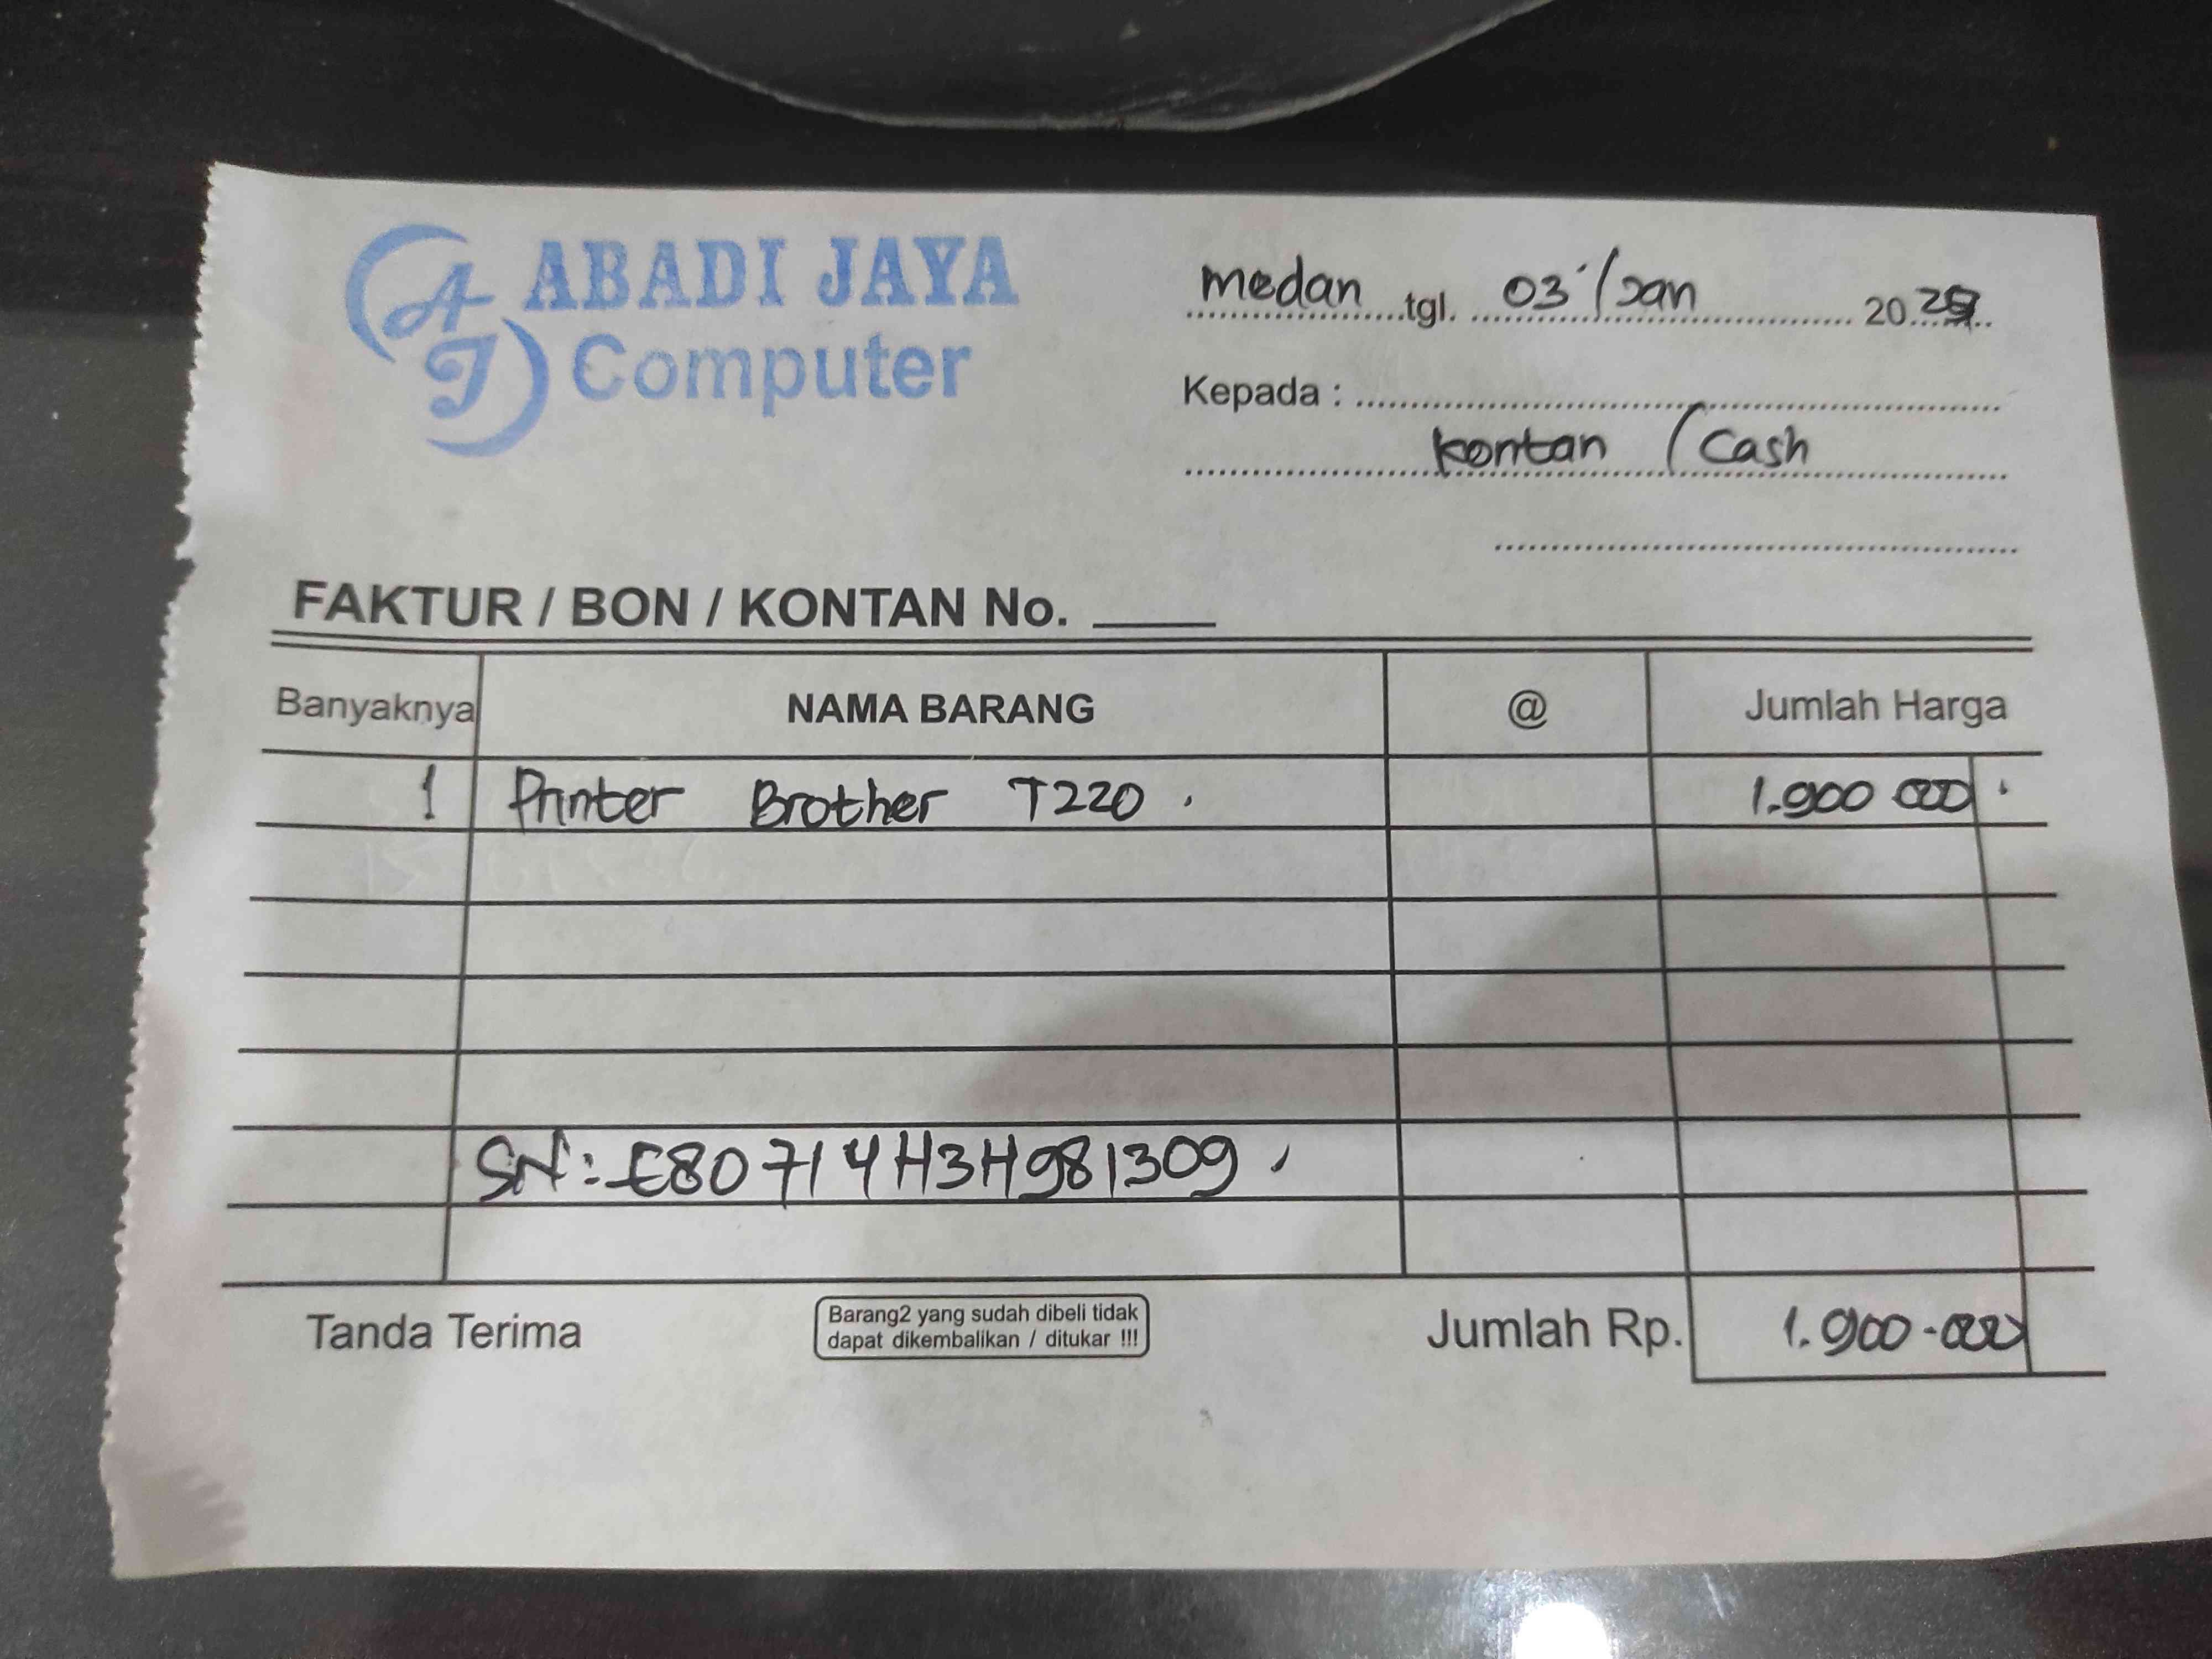 AJ ABADI JAYA
Computer
medan tgl. 03 / Jan 20
Kepada :
Kontan / Cash
FAKTUR / BON / KONTAN No.
Banyaknya NAMA BARANG @ Jumlah Harga
1 Printer Brother T220 . 1.900 000 .
SN : E80714H3H981309
Tanda Terima Barang2 yang sudah dibeli tidak Jumlah Rp. 1.900.000
dapat dikembalikan / ditukar !!!